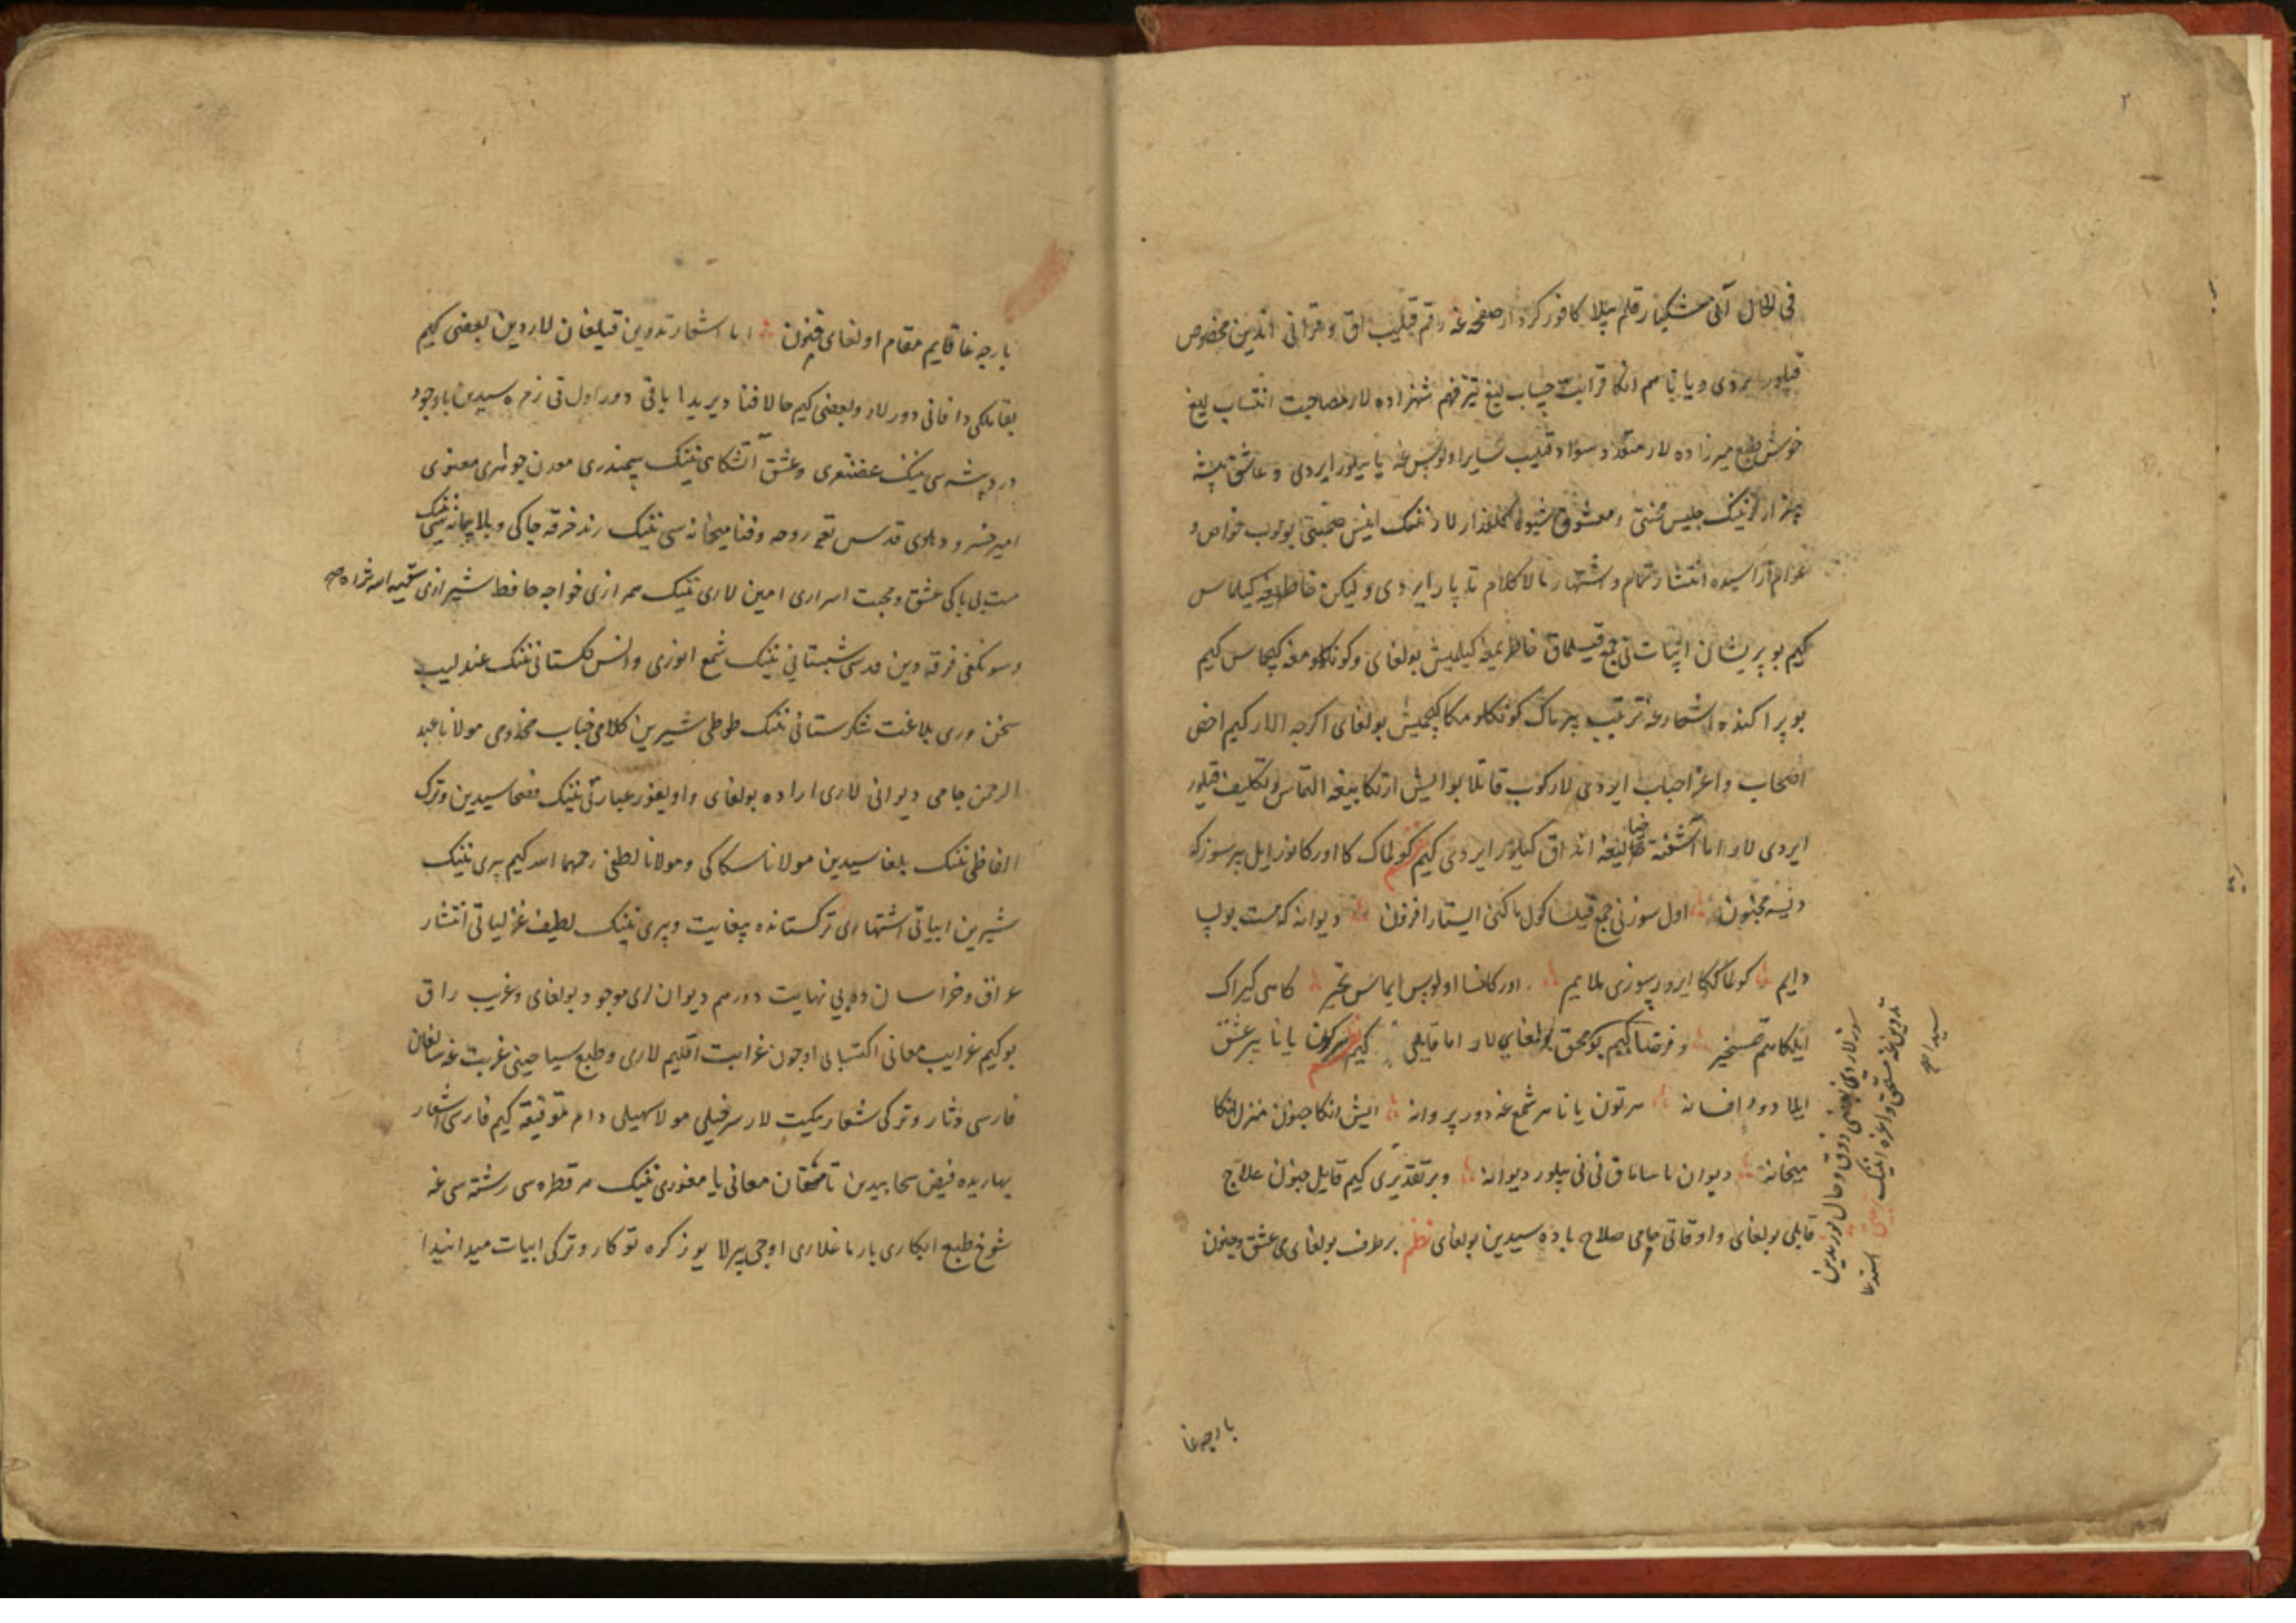 ۲
فی الحال آنی مشکبار قلم بیلا کافور کردار صفحه غه رقم قیلیب اق و قرانی اندین مخصوص
قیلور ایردی و یا باسم انکا قرابت چسپان لیغ تیز فهم شهزاده لار مصاحبت انتساب لیغ
خوش طبع میرزاده لار منقد و سواد قلیب سایر اولوس غه یاییلور ایردی و عاشق پیشه
لارنینک جلیس محنتی و معشوق شیوه کلعذار لارنینک انیس صحبتی بولوب خواص و
عوام آراسیده انتشار تمام و اشتهار مالاکلام تاپار ایردی و لیکن خاطریغه کیلماس
کیم بو پریشان ابیات نی جمع قیلماق خاطریمغه کیلمیش بولغای و کونکلومغه کیچماس کیم
بو پراکنده اشعارغه ترتیب بیرماک کونکلومکا کیچمیش بولغای اکرچه الار کیم اخص
اصحاب و اعز احباب ایردی لار کوب قاتلا بو ایش ارتکابیغه التماس و تکلیف قیلور
ایردی لار اما آشفته خیالیغه انداق کیلور ایردی کیم نظم کولماک کا اورکانور ایل بیر سوز که
دیسه مجنون اول سوزنی جمع قیلسا کولماکنی ایستار افزون دیوانه که مست بولوب
دایم کولماککا ایرور سوزی ملایم اورکانسا اولوس ایماس تحیر کاهی کیراک
ایلکا هم تمسخر و فرضا کیم بو محقق بولغای لار اما قایلی کیم نظم هر کون یانا بیر عشق
ایلما دور افسانه هر تون یانا هر شمع غه دور پروانه ایش انکا جنون منزل انکا
میخانه دیوان یاساماق نی نی بیلور دیوانه و بر تقدیری کیم قایل جنون علاج
قابلی بولغای و اوقاتی جامی صلاح باده سیدین بولغای نظم برطرف بولغای می عشق و جنون
سوزلاردین بعضی ذوق و حال
تدوین غه مستحق و اعزه انینک
بارچه غا
بارچه غا قایم مقام اولغای فنون اما اشعار تدوین قیلغان لاردین بعضی کیم
بقا ملکی دا فانی دورلار و بعضی کیم حالا فنا دیریدا باقی دور اول قی زمره سیدین باوجود
درد بیشه سی نینک غضنفری و عشق آتشکاهی نینک سمندری معدن جواهری معنوی
امیر خسرو دهلوی قدس تعه روحه و فنا میخانه سی نینک رند خرقه چاکی و بلا پیمانه سی نینک
مست بی باکی عشق و محبت اسراری امین لاری نینک همرازی خواجه حافظ شیرازی سقی الله ثراه
و سونکغی فرقه دین قدسی شبستانی نینک شمع انوری و انس کلستانی نینک عندلیب
سخن وری بلاغت شکرستانی نینک طوطی شیرین کلامی جناب مخدومی مولانا عبد
الرحمن جامی دیوانی لاری اراده بولغای و اویغور عبارتی نینک فصحاسیدین و ترک
الفاظی نینک بلغاسیدین مولانا سکاکی و مولانا لطفی رحمهما الله کیم بیری نینک
شیرین ابیاتی اشتهاری ترکستانده بیغایت و بیری نینک لطیف غزلیاتی انتشار
عراق و خراسان ده بی نهایت دور هم دیوان لری موجود بولغای و غریب راق
بو کیم غرایب معانی اکتسابی اوجون غرابت اقلیم لاری و طبع سیاحینی غربت غه سالغان
فارسی دثار و ترکی شعار یکیت لار سرخیلی مولا سهیلی دام توفیقه کیم فارسی اشعار
بهاریده فیض سحابیدین تامغان معانی یامغوری نینک هر قطره سی رشته سی غه
شوخ طبع ابکاری بارماغلاری اوجی بیرلا یوز کره توکار و ترکی ابیات میدانیدا